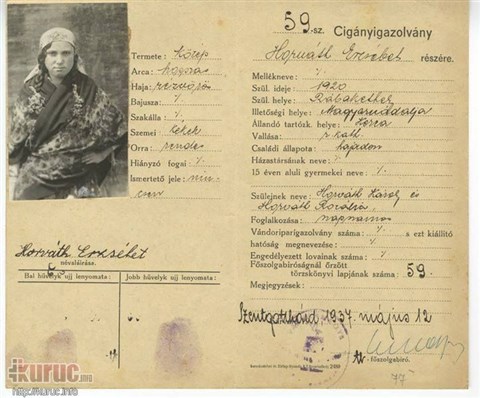 59.-sz. Cigányigazolvány
Horváth Erzsébet részére.
Termete: közép
Arca: hosszas
Haja:
Bajusza: ⁒
Szakálla: ⁒
Szemei: kékek
Orra: rendes
Hiányzó fogai: ⁒
Ismertető jele: nin-
csen
Horváth Erzsébet
névaláírása.
Bal hüvelyk ujj lenyomata:
Jobb hüvelyk ujj lenyomata:
Mellékneve: ⁒
Szül. ideje: 1920
Szül. helye: Rábakethely
Illetőségi helye: Magyarnádalja
Állandó tartózk. helye:
Vallása: r. kath.
Családi állapota: hajadon
Házastársának neve: ⁒
15 éven aluli gyermekei neve: ⁒
Szüleinek neve: Horváth Károly és
Horváth Rozália
Foglalkozása: napszámos
Vándoriparigazolvány száma: ⁒ s ezt kiállító
hatóság megnevezése: ⁒
Engedélyezett lovainak száma: ⁒
Főszolgabiróságnál őrzött
törzskönyvi lapjának száma: 59.
Megjegyzések:
Szentgotthárd, 1937. május 12
főszolgabiró.
77
kuruc.info
http://kuruc.info